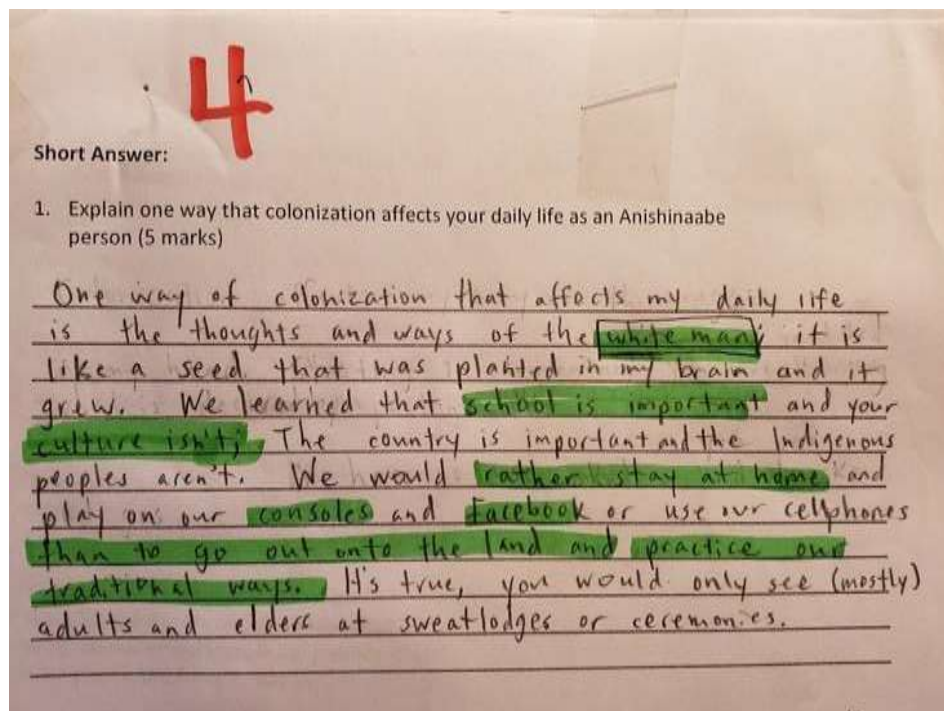 4
Short Answer:
1. Explain one way that colonization affects your daily life as an Anishinaabe
person (5 marks)
One way of colonization that affects my daily life
is the thoughts and ways of the white man; it is
like a seed that was planted in my brain and it
grew. We learned that school is important and your
culture isn't; The country is important and the Indigenous
peoples aren't. We would rather stay at home and
play on our consoles and Facebook or use our cellphones
than to go out onto the land and practice our
traditional ways. It's true, you would only see (mostly)
adults and elders at sweatlodges or ceremonies.